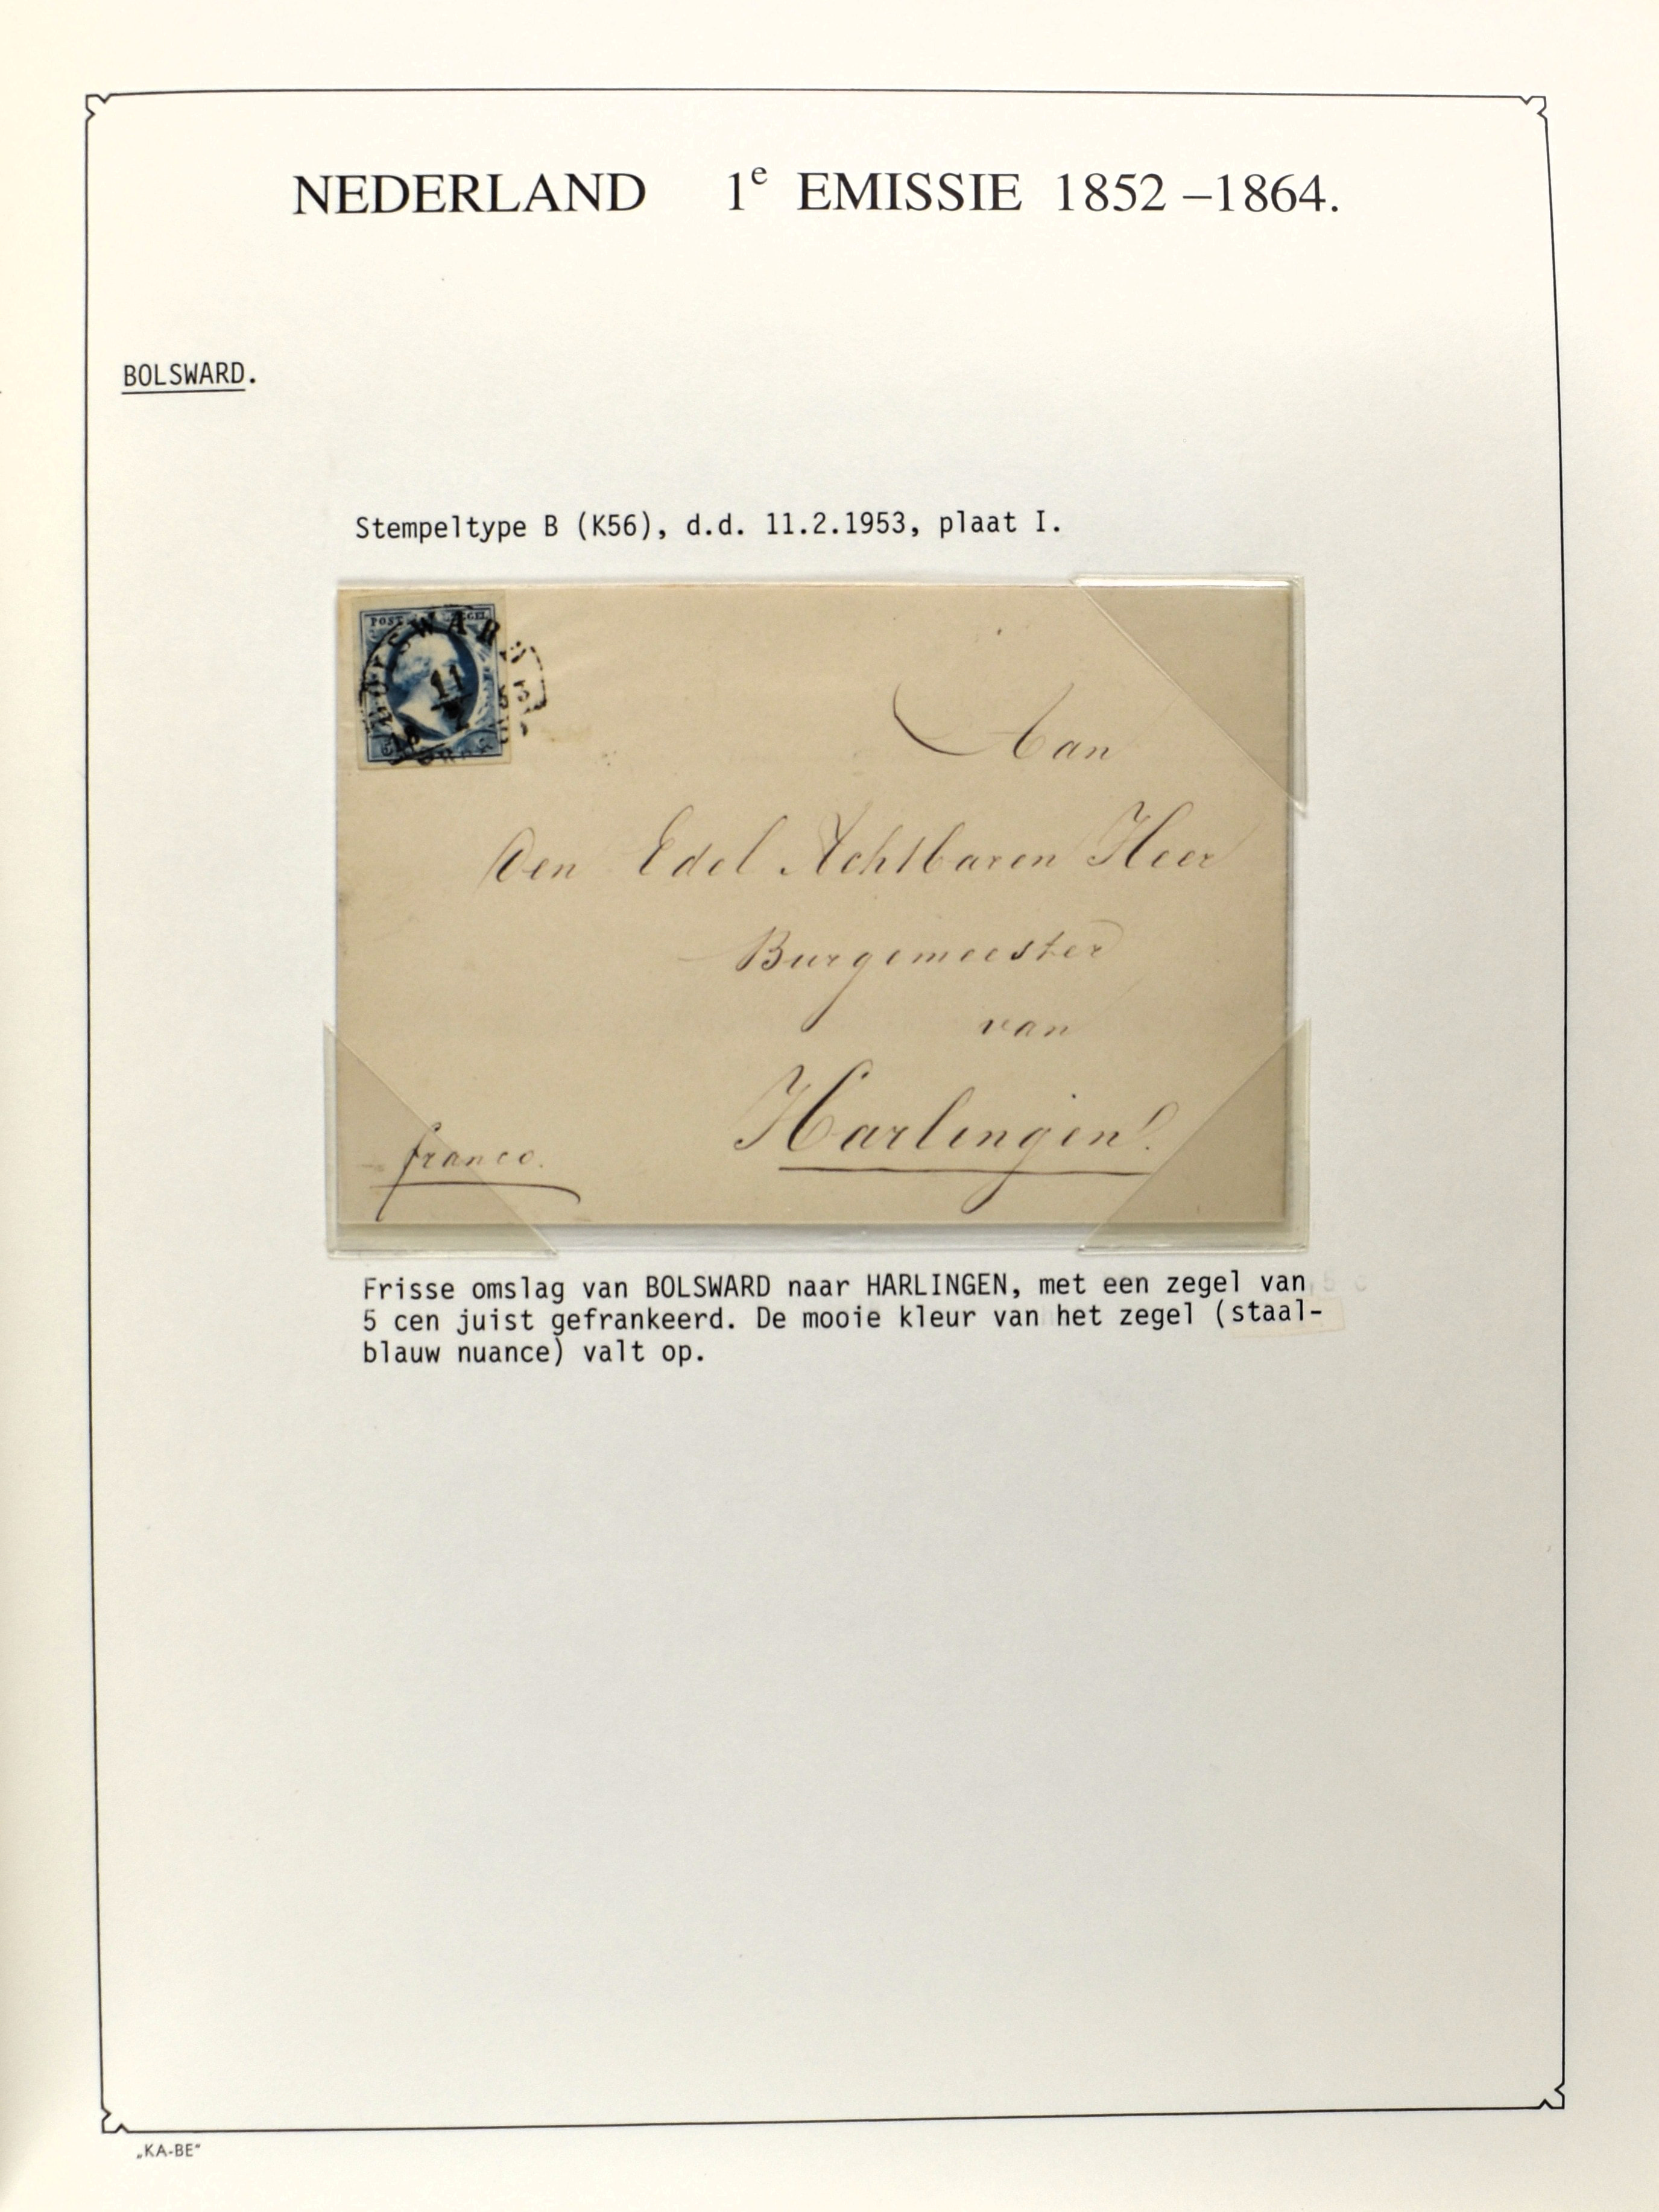 NEDERLAND 1e EMISSIE 1852 –1864.
BOLSWARD.
Stempeltype B (K56), d.d. 11.2.1953, plaat I.
POST ZEGEL
BOLSWARD
11
Aan
Den Edel Achtbaren Heer
Burgemeester
van
Harlingen!
franco.
Frisse omslag van BOLSWARD naar HARLINGEN, met een zegel van
5 cen juist gefrankeerd. De mooie kleur van het zegel (staal-
blauw nuance) valt op.
„KA-BE“